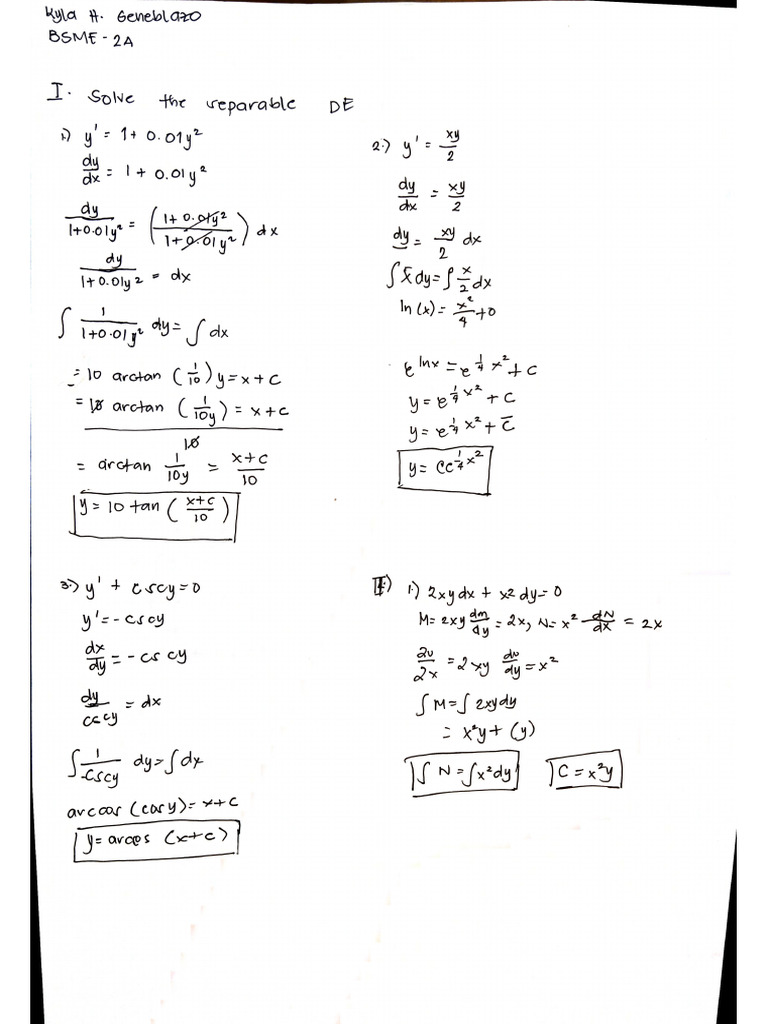 Kyla H. Geneblazo
BSME - 2A
I. Solve the separable DE
1.) y' = 1 + 0.01y²
dy/dx = 1 + 0.01y²
dy/1+0.01y² = (1+0.01y²/1+0.01y²) dx
dy/1+0.01y² = dx
∫ 1/1+0.01y² dy = ∫ dx
= 10 arctan (1/10) y = x + c
= 10 arctan (1/10y) = x + c
10
= arctan 1/10y = x+c/10
y = 10 tan (x+c/10)
2.) y' = xy/2
dy/dx = xy/2
dy = xy/2 dx
∫ dy = ∫ x/2 dx
ln(x) = x²/4 + 0
e^lnx = e^¼x² + c
y = e^¼x² + C
y = e^¼x² + C̅
y = Ce^¼x²
3.) y' + cscy = 0
y' = - cscy
dx/dy = - cscy
dy/cscy = dx
∫ 1/-cscy dy = ∫ dx
arccos (cosy) = x + c
y = arccos (x+c)
II.) 1.) 2xydx + x2 dy = 0
M = 2xy dm/dy = 2x, N = x² dN/dx = 2x
2u/2x = 2xy du/dy = x²
∫ M = ∫ 2xydy
= x²y + (y)
∫ N = ∫ x²dy
C = x²y